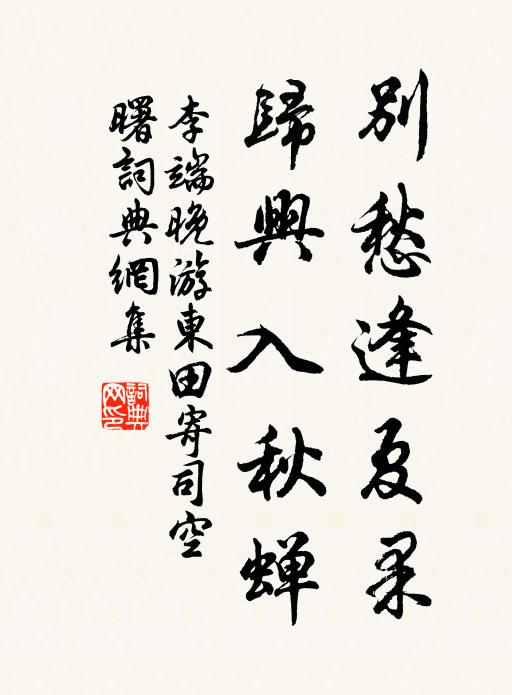 别愁逢夏果
歸興入秋蝉
李端晚游東田寄司空
曙詞典網集
詞典
网印